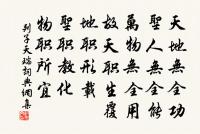 天地無全功
聖人無全能
萬物無全用
故天職生覆
地職形載
聖職教化
物職所宜
列子天瑞詞典網集